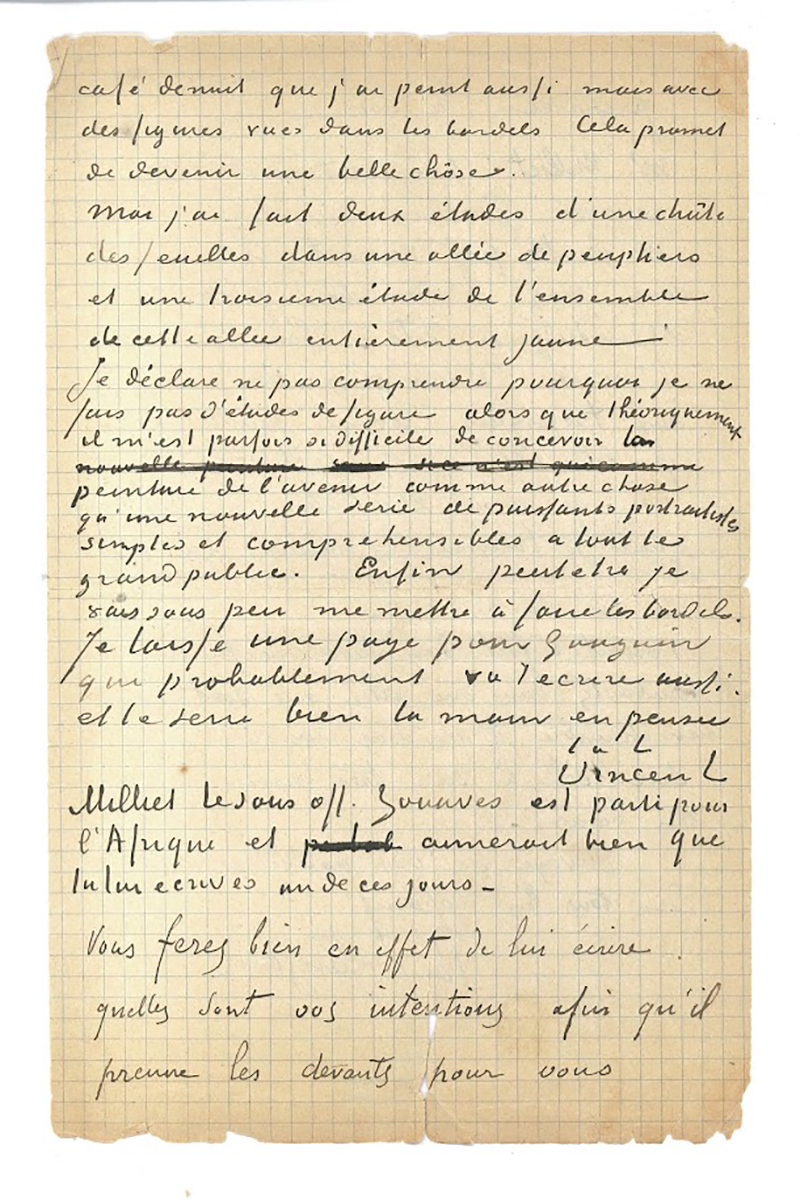 café de nuit que j'ai peint aussi mais avec
des figures vues dans les bordels Cela promet
de devenir une belle chôse.
moi j'ai fait deux études d'une chûte
des feuilles dans une allée de peupliers
et une troisieme étude de l'ensemble
de cette allee entièrement jaune
Je déclare ne pas comprendre pourquoi je ne
fais pas d'études de figure alors que théoriquement
il m'est parfois si difficile de concevoir la
nouvelle peinture si ce n'est que comme
peinture de l'avenir comme autre chose
qu'une nouvelle serie de puissants portraitistes
simples et comprehensibles a tout le
grand public. Enfin peut etre je
vais sous peu me mettre à faire les bordels.
Je laisse une page pour Gauguin
qui probablement va t'ecrire aussi.
et te serre bien la main en pensee
t. à t.
Vincent
Milliet le sous off. Zouaves est parti pour
l'Afrique et aimerait bien que
tu lui ecrives un de ces jours -
Vous ferez bien en effet de lui écrire
quelles sont vos intentions afin qu'il
prenne les devants pour vous